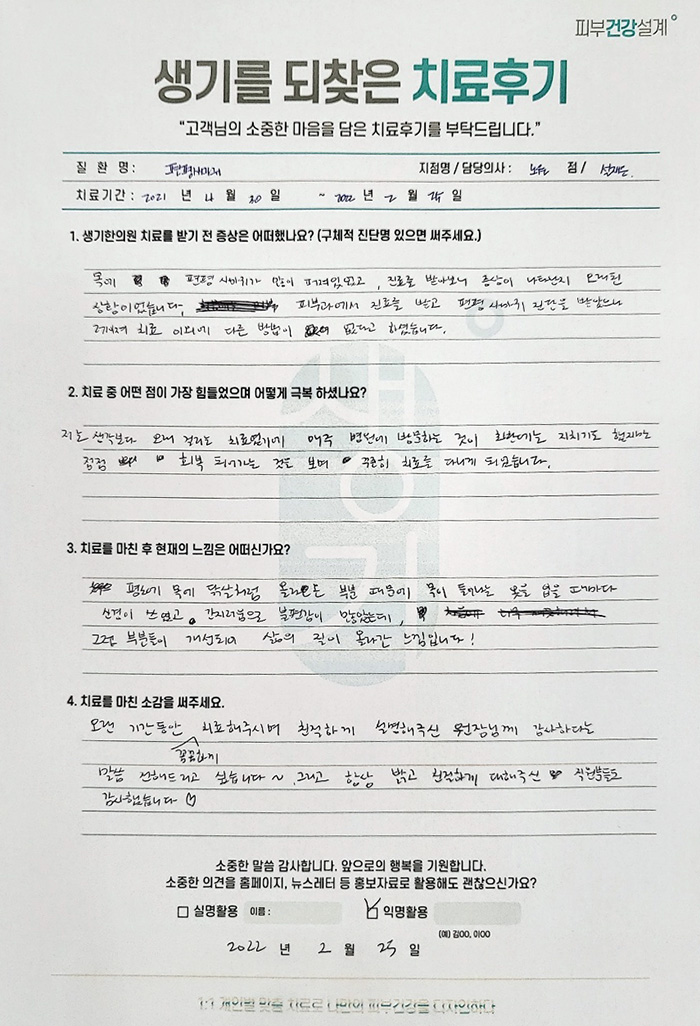 피부건강설계
생기를 되찾은 치료후기
“고객님의 소중한 마음을 담은 치료후기를 부탁드립니다.”
질 환 명 : 편평사마귀 지점명 / 담당의사 : 노원 점 /
치료기간 : 2021 년 4 월 30 일 ~ 2022 년 2 월 25 일
1. 생기한의원 치료를 받기 전 증상은 어떠했나요? (구체적 진단명 있으면 써주세요.)
목에 편평 사마귀가 많이 퍼져있었고, 진료를 받아보니 증상이 나타난지 오래된
상황이었습니다. 피부과에서 진료를 받고 편평 사마귀 진단을 받았으나
레이저 치료 이외에 다른 방법이 없다고 하였습니다.
2. 치료 중 어떤 점이 가장 힘들었으며 어떻게 극복 하셨나요?
저는 생각보다 오래 걸리는 치료였기에 매주 병원에 방문하는 것이 힘들다는 지치기도 했지만
점점 회복 되어가는 것을 보며 꾸준히 치료를 다니게 되었습니다.
3. 치료를 마친 후 현재의 느낌은 어떠신가요?
평소에 목에 닭살처럼 올라온 부분 때문에 목이 들어나는 옷을 입을 때마다
신경이 쓰였고, 간지러움으로 불편감이 많았는데,
그런 부분들이 개선되어 삶의 질이 올라간 느낌입니다!
4. 치료를 마친 소감을 써주세요.
오랜 기간동안 치료해주시며 친절하게 설명해주신 원장님께 감사하다는
꼼꼼하게
말씀 전해드리고 싶습니다~ 그리고 항상 밝고 친절하게 대해주신 직원분들도
감사했습니다 ♡
소중한 말씀 감사합니다. 앞으로의 행복을 기원합니다.
소중한 의견을 홈페이지, 뉴스레터 등 홍보자료로 활용해도 괜찮으신가요?
실명활용 이름 : 익명활용
(예) 김OO, 이OO
2022 년 2 월 25 일
1:1 개인별 맞춤 치료로 나만의 피부건강을 디자인하다
생기